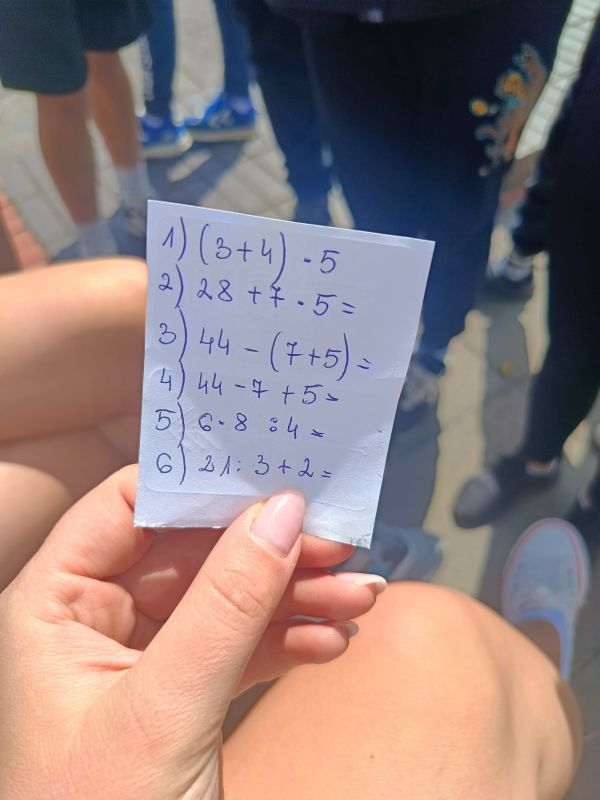 1) (3+4) · 5
2) 28 + 7 · 5 =
3) 44 - (7+5) =
4) 44 - 7 + 5 =
5) 6 · 8 : 4 =
6) 21 : 3 + 2 =